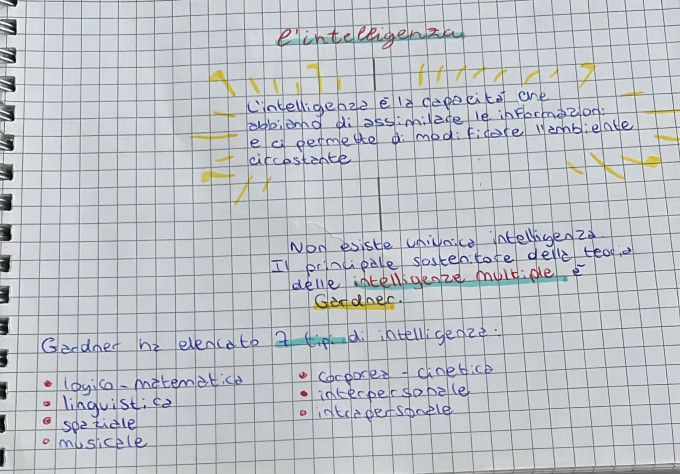 l'intelligenza
L'intelligenza è la capacità che
abbiamo di assimilare le informazioni
e ci permette di modificare l'ambiente
circostante
Non esiste un'unica intelligenza
Il principale sostenitore della teoria
delle intelligenze multiple è
Gardner.
Gardner ha elencato 7 tipi di intelligenza:
• logico-matematica
• linguistica
• spaziale
• musicale
• corporea-cinetica
• interpersonale
• intrapersonale